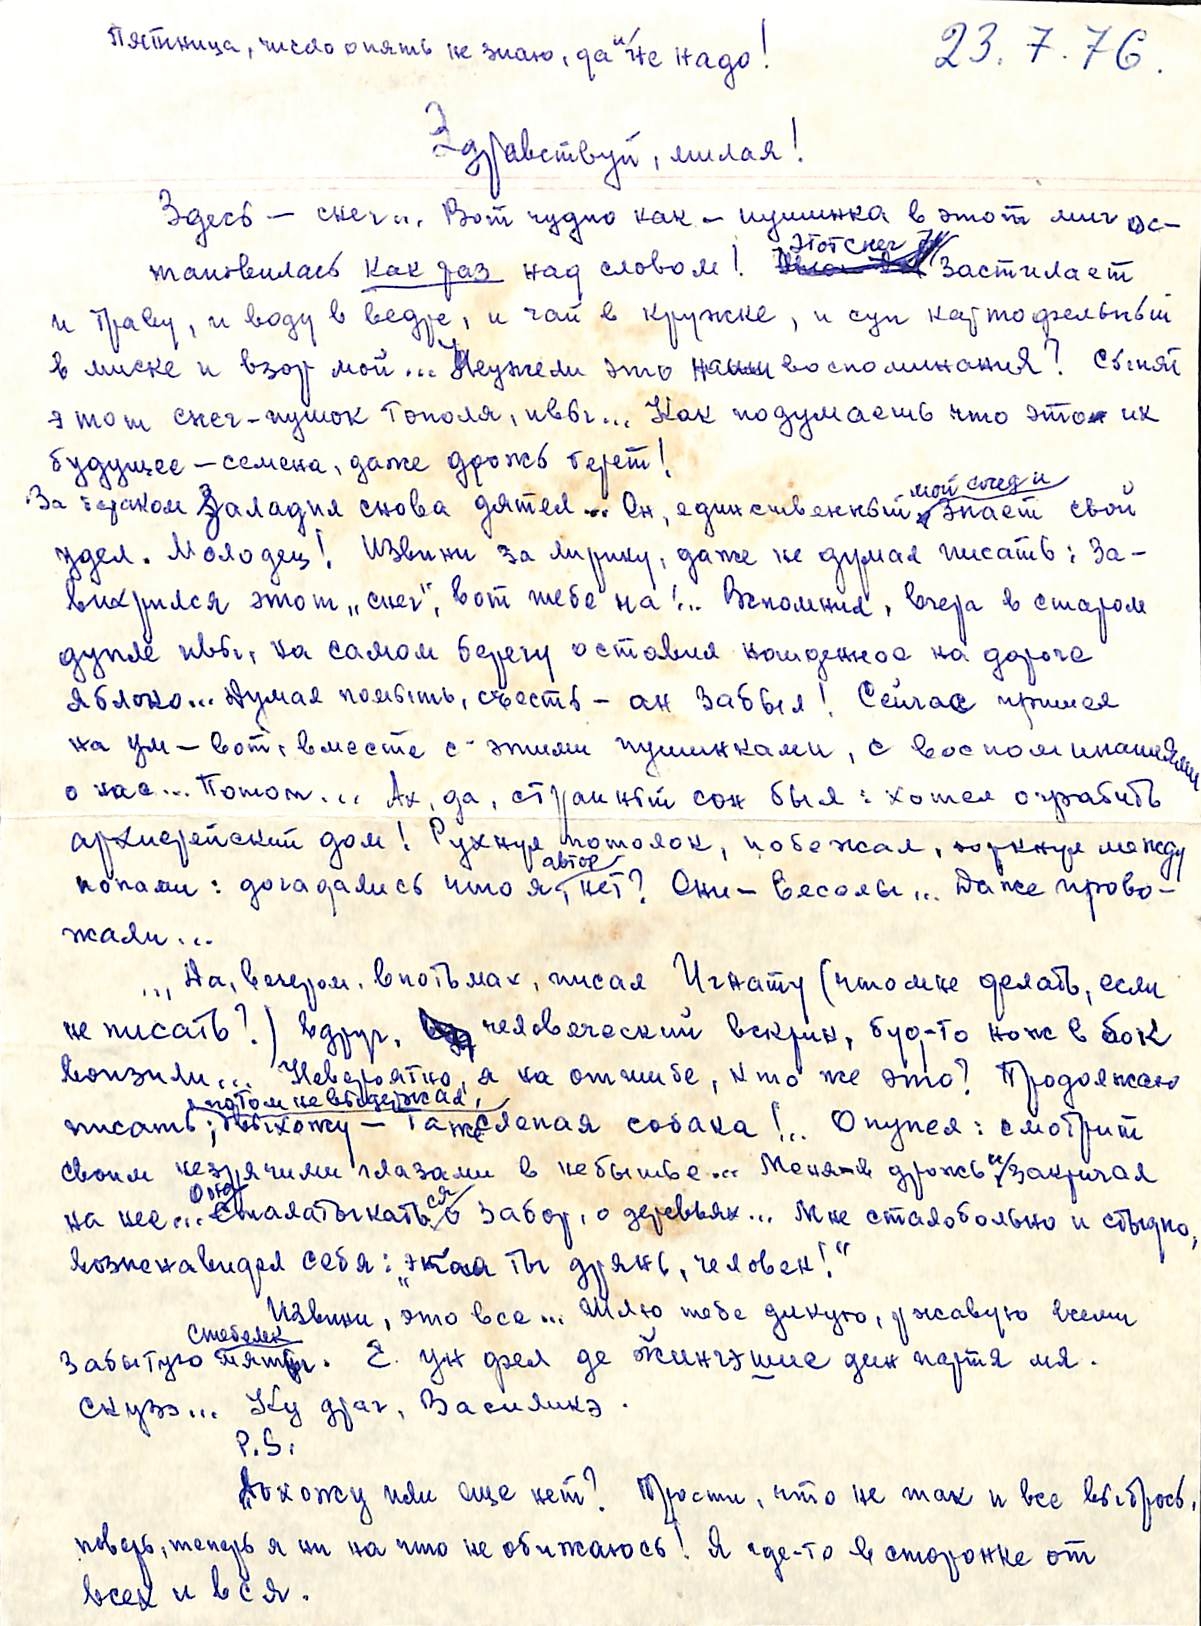 Пятница, число опять не знаю, да и не надо!
23.7.76.
Здравствуй, милая!
Здесь – снег... Вот чудно как – пушинка в этот миг ос-
тановилась как раз над словом! Этот снег застилает
и траву, и воду в ведре, и чай в кружке, и суп картофельный
в миске и взор мой... Неужели это наши воспоминания? Сыпят
этот снег-пушок тополя, ивы... Как подумаешь что это их
будущее – семена, даже дрожь берет!
За бараком заладил снова дятел... Он, единственный мой сосед и знает свой
удел. Молодец! Извини за лирику, даже не думал писать: за-
вихрился этот „снег", вот тебе на!.. Вспомнил, вчера в старом
дупле ивы, на самом берегу оставил найденное на дороге
яблоко... Думал помыть, съесть – ан забыл! Сейчас пришел
на ум – вот, вместе с этими пушинками, с воспоминаниями
о нас... Потом... Ах, да, странный сон был: хотел ограбить
архиерейский дом! Рухнул потолок, побежал, юркнул между
попами: догадались что я автор, нет? Они – веселы... Даже прово-
жали...
... Да, вечером, впотьмах, писал Игнату (что мне делать, если
не писать?) вдруг, человеческий вскрик, буд-то нож в бок
вонзили... Невероятно, я на отшибе, кто же это? Продолжаю
писать; потом не выдержал, выхожу – та же слепая собака!.. Опупел: смотрит
своим незрячими глазами в небытье... Меня в дрожь и закричал
на нее... Она стала тыкаться о забор, о деревья... Мне стало больно и стыдно,
возненавидел себя: „экая ты дрянь, человек!"
Извини, это все... Шлю тебе дикую, ржавую всеми
забытую стебелек мяты. Е ун фел де жингэшие дин партя мя.
Скузэ... Ку драг, Василикэ.
P.S.
Дохожу или еще нет? Прости, что не так и все выбрось,
поверь, теперь я ни на что не обижаюсь! Я где-то в сторонке от
всех и вся.